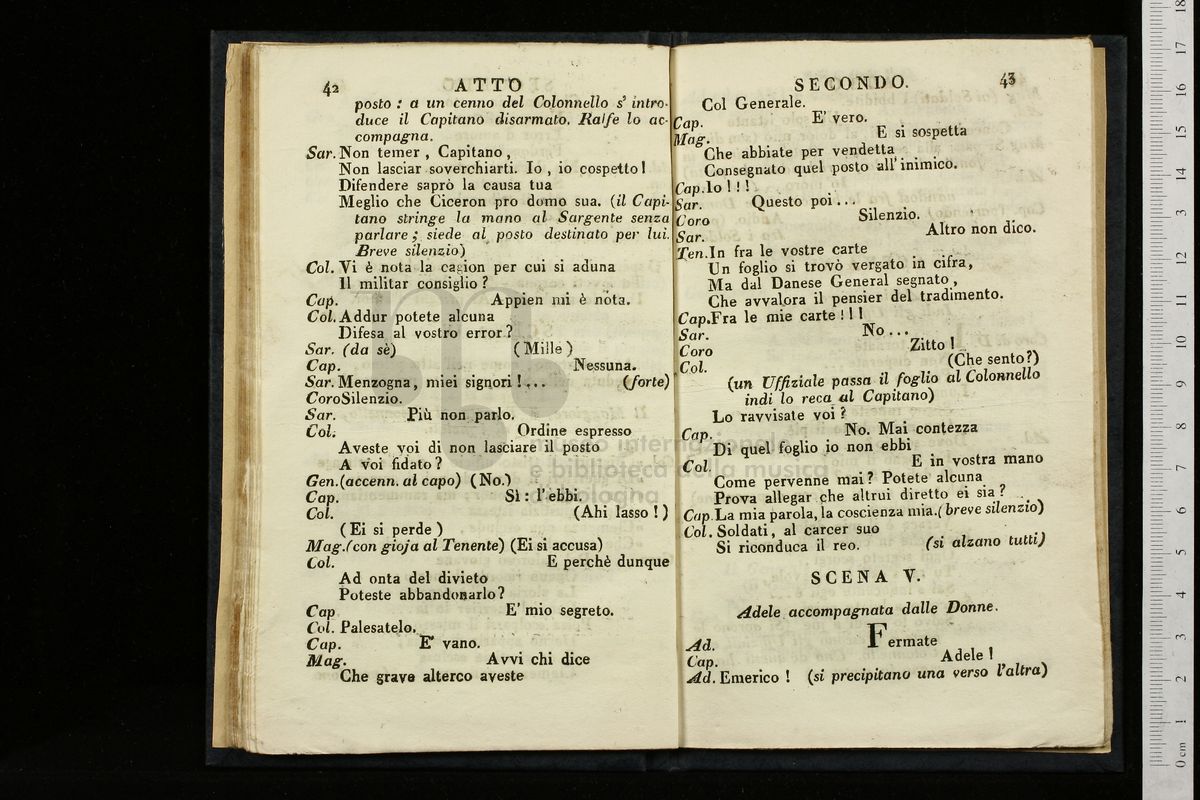 42 ATTO
posto : a un cenno del Colonnello s' intro-
duce il Capitano disarmato. Ralfe lo ac-
compagna.
Sar. Non temer , Capitano ,
Non lasciar soverchiarti. Io , io cospetto !
Difendere saprò la causa tua
Meglio che Ciceron pro domo sua. (il Capi-
tano stringe la mano al Sargente senza
parlare ; siede al posto destinato per lui.
Breve silenzio)
Col. Vi è nota la cagion per cui si aduna
Il militar consiglio ?
Cap. Appien mi è nota.
Col. Addur potete alcuna
Difesa al vostro error ?
Sar. (da sè) (Mille)
Cap. Nessuna.
Sar. Menzogna, miei signori ! ... (forte)
Coro Silenzio.
Sar. Più non parlo.
Col. Ordine espresso
Aveste voi di non lasciare il posto
A voi fidato ?
Gen. (accenn. al capo) (No.)
Cap. Sì : l' ebbi.
Col. (Ahi lasso !)
(Ei si perde)
Mag. (con gioja al Tenente) (Ei si accusa)
Col. E perchè dunque
Ad onta del divieto
Poteste abbandonarlo ?
Cap E' mio segreto.
Col. Palesatelo.
Cap. E' vano.
Mag. Avvi chi dice
Che grave alterco aveste
SECONDO. 43
Col Generale.
Cap. E' vero.
Mag. E si sospetta
Che abbiate per vendetta
Consegnato quel posto all' inimico.
Cap. Io ! ! !
Sar. Questo poi ...
Coro Silenzio.
Sar. Altro non dico.
Ten. In fra le vostre carte
Un foglio si trovò vergato in cifra,
Ma dal Danese General segnato ,
Che avvalora il pensier del tradimento.
Cap. Fra le mie carte ! ! !
Sar. No ...
Coro Zitto !
Col. (Che sento ?)
(un Uffiziale passa il foglio al Colonnello
indi lo reca al Capitano)
Lo ravvisate voi ?
Cap. No. Mai contezza
Di quel foglio io non ebbi
Col. E in vostra mano
Come pervenne mai ? Potete alcuna
Prova allegar che altrui diretto ei sia ?
Cap. La mia parola, la coscienza mia. (breve silenzio)
Col. Soldati, al carcer suo
Si riconduca il reo. (si alzano tutti)
SCENA V.
Adele accompagnata dalle Donne.
Ad. Fermate
Cap. Adele !
Ad. Emerico ! (si precipitano una verso l'altra)
museo internazionale
e biblioteca della musica
di bologna
0 cm 1 2 3 4 5 6 7 8 9 10 11 12 13 14 15 16 17 18